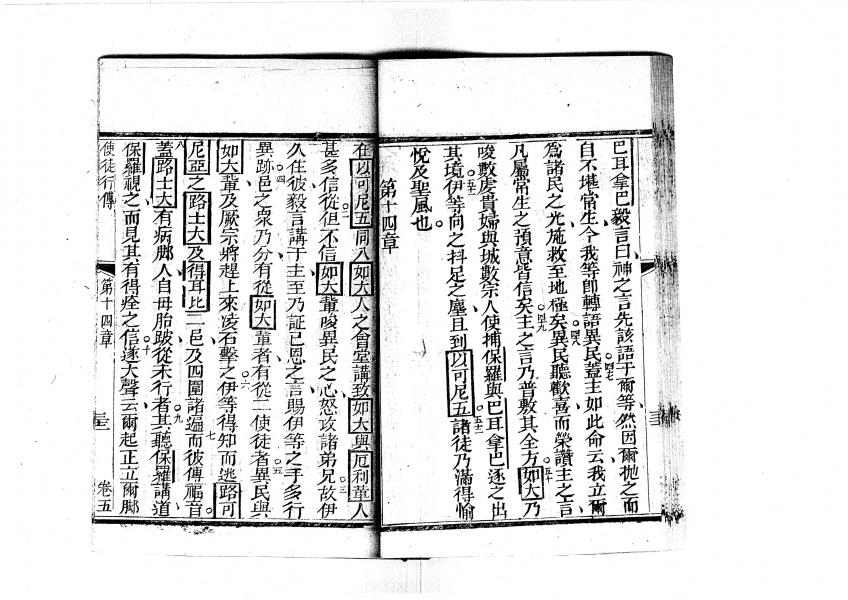 巴耳拿巴毅言曰神之言先該語于爾等然因爾拋之而
四七
自不堪常生今我等卽轉語異民蓋主如此命云我立爾
四八
爲諸民之光施救至地極矣異民聽歡喜而榮讚主之言
四九
凡屬常生之預意皆信矣主之言乃普敷其全方如大乃
五十
唆數虔貴婦與城數宗人使捕保羅與巴耳拿巴逐之出
五一
其境伊等向之抖足之塵且到以可尼五諸徒乃滿得愉
五二
悅及聖風也
第十四章
在以可尼五同入如大人之會堂講致如大與厄利葷人
二
甚多信從但不信如大輩唆異民之心怒攻諸弟兄故伊
三
久住彼毅言講于主至乃証己恩之言賜伊等之手多行
四
異跡邑之衆乃分有從如大輩者有從二使徒者異民與
五
如大輩及厥宗將趕上來凌石擊之伊等得知而逃路可
六
尼亞之路士大及得耳比二邑及四圍諸邉而彼傳福音
七
八
蓋路士大有病脚人自母胎跛從未行者其聽保羅講道
九
保羅視之而見其有得痊之信遂大聲云爾起正立爾脚
十
使徒行傳
第十四章
三三
卷五